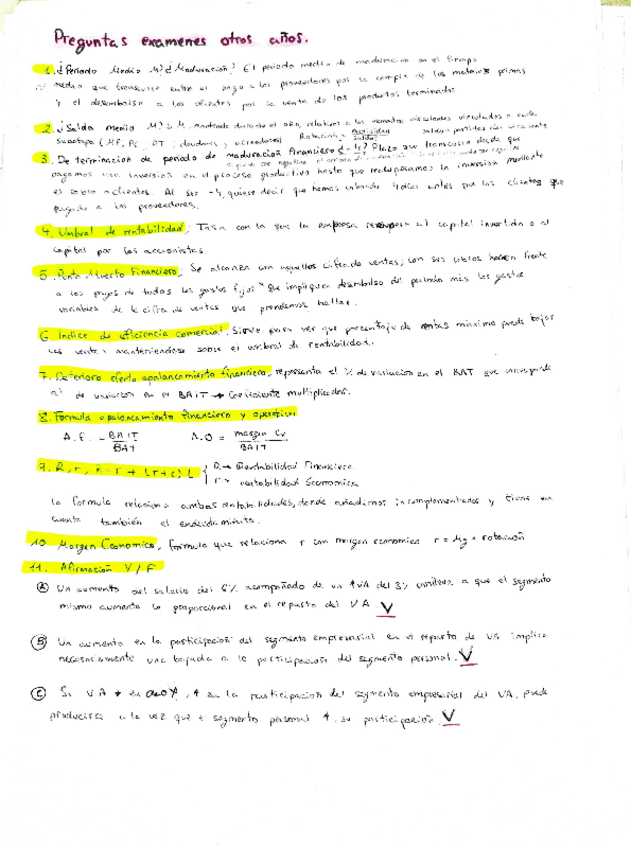 Preguntas examenes otros años.
1. ¿Periodo Medio M? ¿Maduración? El periodo medio de maduración es el tiempo
medio que transcurre entre el pago a los proveedores por la compra de las materias primas
y el desembolso a los clientes por la venta de los productos terminados
2. ¿Saldo medio M? S.M. mantenido durante el año, relativos a los elementos circulantes vinculados a cada
subetapa (Mf, PC, PT, deudores, acreedores) Rotación = Actividad / Saldo
3. Determinación de periodo de maduración financiero ¿-4? Plazo que transcurre desde que
pagamos una inversión en el proceso productivo hasta que recuperamos la inversión mediante
el cobro a clientes. Al ser -4, quiere decir que hemos cobrado 4 días antes por los clientes que
pagado a los proveedores.
4. Umbral de rentabilidad; Tasa con la que la empresa recupera el capital invertido o el
capital por los accionistas.
5. Punto Muerto Financiero, Se alcanza con aquellos cifra de ventas, con sus cobros hacen frente
a los pagos de todos los gastos fijos "que impliquen desembolso del periodo más los gastos
variables de la cifra de ventas que pretendemos hallar.
6 Indice de eficiencia comercial. Sirve para ver que porcentaje de ventas máximo puede bajar
las ventas manteniendose sobre el umbral de rentabilidad.
7. Deterioro efecto apalancamiento financiero, representa el % de variación en el BAT que corresponde
al de variación en el BAIT → Coeficiente multiplicador.
8. Formula apalancamiento financiero y operativo
A.f. = BAIT / BAT A.O = margen Cv / BAIT
9. R, r, R = r + (r + c) L { R → Rentabilidad Financiera
r = rentabilidad Economica
La formula relaciona ambas rentabilidades, donde añadimos incomplementados y tiene en
cuenta también el endeudamiento.
10 Margen Economico, formula que relaciona r con margen economico r = Mg * rotación
11. Afirmación V/F
A Un aumento del salario del 6% acompañado de un ↑VA del 3% conlleva a que el segmento
mismo aumenta lo proporcional en el reparto del VA. V
B Un aumento en la participación del segmento empresarial en el reparto de VA implica
necesariamente una bajada a la participación del segmento personal. V
C Si VA ↑ en a%, ↑ en la participación del segmento empresarial del VA, puede
producirse a la vez que el segmento personal ↑, su participación. V